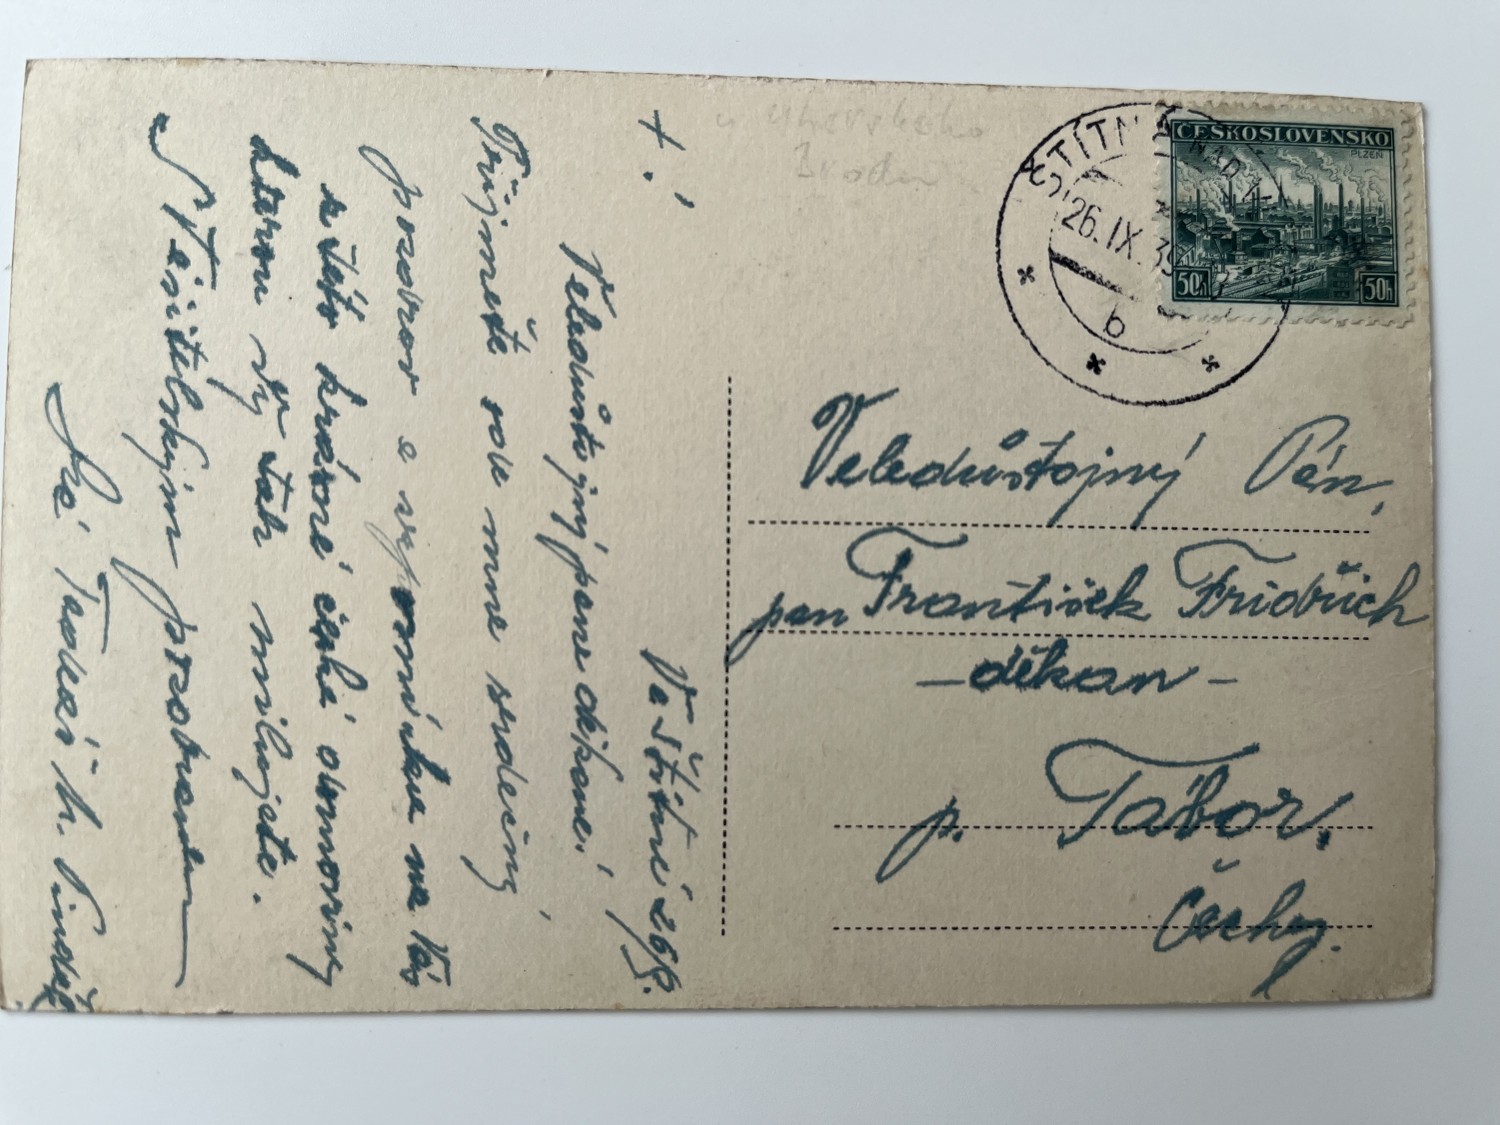 +.
Ve Štítné 26/9.
Veledůstojný pane děkane!
Přijměte ode mne srdečný
pozdrav a vzpomínku na Vás
z této krásné české domoviny
kterou Vy tak milujete.
S Vašitelským pozdravem
u Uherského
Brodu
ŠTÍTNÁ NAD
26.IX.39
b
ČESKOSLOVENSKO
PLZEŇ
50h 50h
Veledůstojný Pán,
pan František Fridrich
-děkan-
p. Tábor.
Čechy.